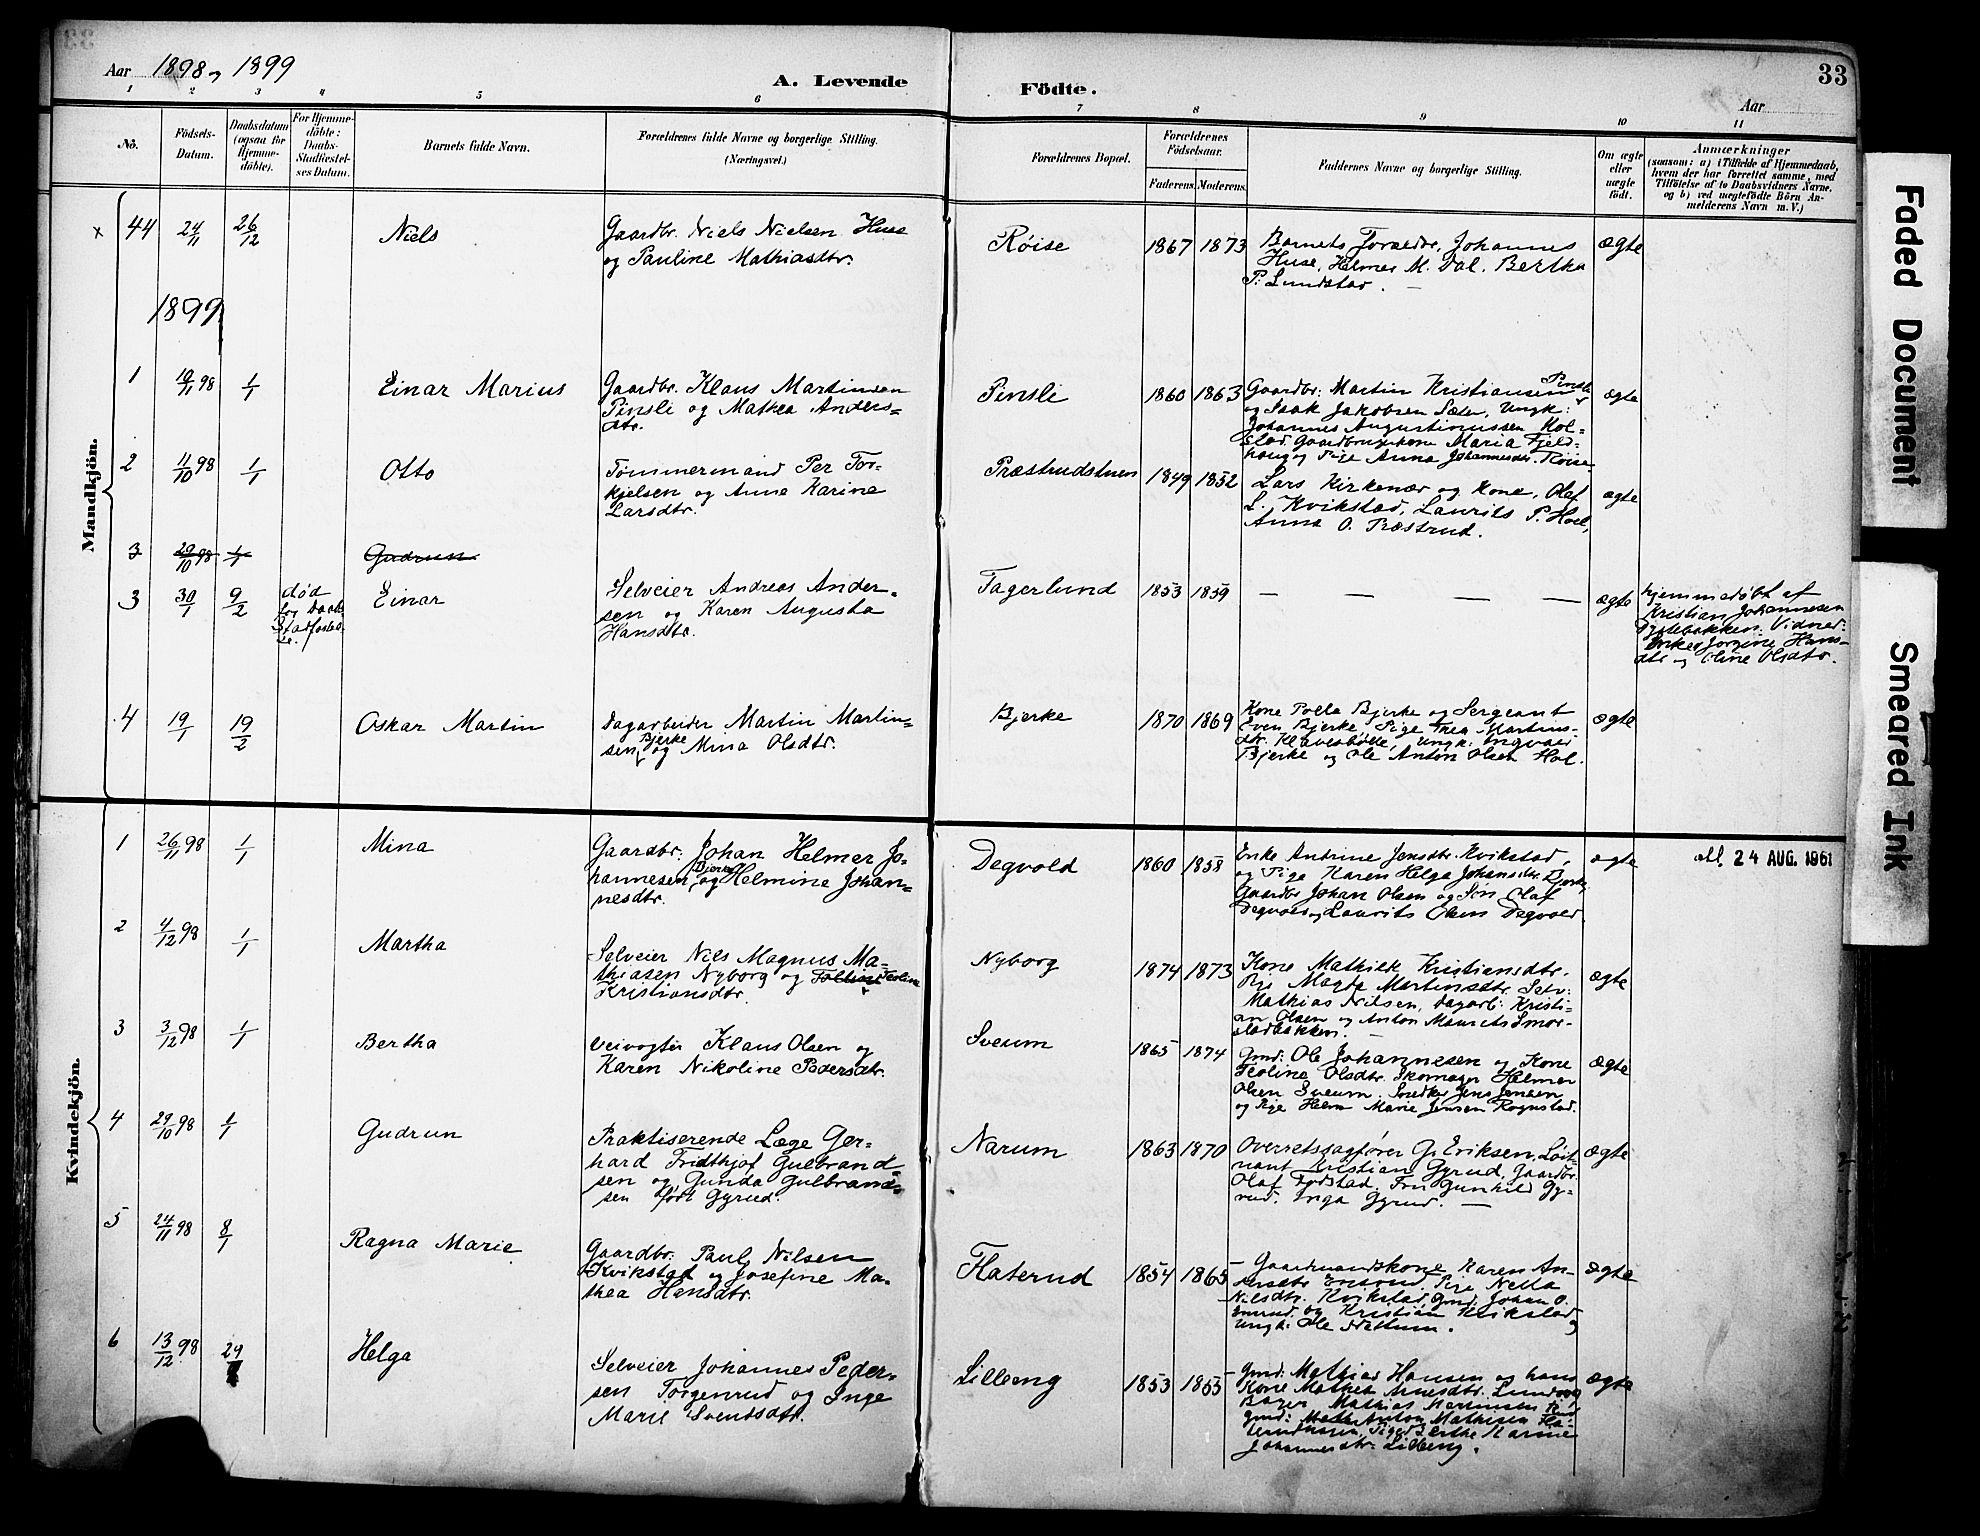 Aar 1898, 1899
A. Levende
Födte.
33
Aar
1 2 3 4 5 6 7 8 9 10 11
No.
Födsels-
Datum.
Daabsdatum
(ogsaa for
Hjemme-
döbte).
For Hjemme-
döbte:
Daabs-
Stadfæstel-
ses Datum.
Barnets fulde Navn.
Forældrenes fulde Navne og borgerlige Stilling.
(Næringsvei.)
Forældrenes Bopæl.
Forældrenes
Födselsaar.
Faderens. Moderens.
Faddernes Navne og borgerlige Stilling.
Om ægte
eller
uægte
födt.
Anmærkninger
(saasom: a) i Tilfælde af Hjemmedaab,
hvem der har forrettet samme, med
Tilföielse af to Daabsvidners Navne,
og b) ved uægtefödte Börn An-
melderens Navn m. V.)
Mandkjön.
x 44 24/11 26/12 Niels
Gaardbr. Niels Nielsen Huse
og Pauline Mathiasdtr.
Röise 1867 1873
Barnets Forældre, Johannes
Huse, Helmer M. Dal, Bertha
P. Lundstad. —
ægte
1899
1 19/11 98 1/1 Einar Marius
Gaardbr. Klaus Martinsen
Pinsli og Mathea Anders-
dtr.
Pinsli 1860 1863
Gaardbr: Martin Kristiansen Pinsli
og Isak Jakobsen Sæter, Ungk:
Johannes Augustinussen Hol-
stad. Gaardbrugerkone Maria Fjeld-
haug og Pige Anna Johannesdtr. Röise
ægte
2 11/10 98 1/1 Otto
Tømmermand Per Tor-
kjelsen og Anne Karine
Larsdtr.
Præstrudstuen 1849 1852
Lars Kirkenær og Kone, Olaf
L. Kvikstad, Laurits P. Hoel,
Anna O. Præstrud.
ægte
3 29/10 98 1/1 Gudrun
3 30/1 9/2 død
før Daabs
Stadfæstel-
se. Einar
Selveier Andreas Ander-
sen og Karen Augusta
Hansdtr.
Fagerlund 1853 1859 — — — — ægte
hjemmedöbt af
Kristian Johannesen
Vidner:
Enke Jørgine Hans-
dtr og Oline Olsdtr.
4 19/1 19/2 Oskar Martin
Dagarbeider Martin Martin-
sen Bjerke og Mina Olsdtr.
Bjerke 1870 1869
Kone Polla Bjerke og Sergeant
Even Bjerke, Pige Thea Martins-
dtr. Klævesbölle, Ungk: Ingvald
Bjerke og Ole Anton Olsen Hol.
ægte
Kvindekjön.
1 26/11 98 1/1 Mina
Gaardbr: Johan Helmer Jo-
hannesen Bjerke og Helmine Johan-
nesdtr.
Degvold 1860 1858
Enke Andrine Jensdtr. Kvikstad,
og Pige Karen Helga Johansdtr. Bjerke,
Gaardbr Johan Olsen og Søn Olaf
Degvold og Laurits Olsen Degvold.
ægte
24 AUG. 1961
2 4/12 98 1/1 Martha
Selveier Nils Magnus Ma-
thiasen Nyborg og Teoline
Kristiansdtr.
Nyborg 1874 1873
Kone Mathilde Kristiansdtr.
Pige Magda Martinsdtr. Selv:
Mathias Nilsen, Dagarb: Kristi-
an Olsen og Anton Maurits Smør-
stadbakken. —
ægte
3 3/12 98 1/1 Bertha
Veivogter Klaus Olsen og
Karen Nikoline Pedersdtr.
Sveum 1865 1874
Gmd: Ole Johannesen og Kone
Teoline Olsdtr. Skomager Helmer
Olsen Sveum. Snedker Jens Jensen
og Pige Helen Marie Jensen Rognstad.
ægte
4 29/10 98 1/1 Gudrun
Praktiserende Læge Ger-
hard Fridthjof Gulbrand-
sen og Gunda Gulbrand-
sen født Gyrud.
Narum 1863 1870
Overretssagfører G. Eriksen, Løit-
nant Kristian Gyrud, Gaardbr.
Olaf Fodstad, Fru Gunhild Gy-
rud. Inga Gyrud. —
ægte
5 24/11 98 8/1 Ragna Marie
Gaardbr: Paul Nilsen
Kvikstad og Josefine Ma-
thea Hansdtr.
Flaterud 1854 1865
Gaardmandskone Karen An-
dersdtr Enerud, Pige Netta
Nilsdtr. Kvikstad, Gmd. Johan O.
Enerud, og Kristian Kvikstad og
Ungk: Ole Nettum.
ægte
6 13/12 98 29/1 Helga
Selveier Johannes Peder-
sen Torgenrud og Inge
Marie Svendsdtr.
Lilleeng 1853 1855
Gmd: Mathias Hansen og hans
Kone Mathea Arnesdtr. Lunde og
Bager Mathias Martinsen
Gmd: Anton Mathisen
Pige Berthe Karine
Johannesdtr. Lilleeng.
ægte
Faded Document
Smeared Ink